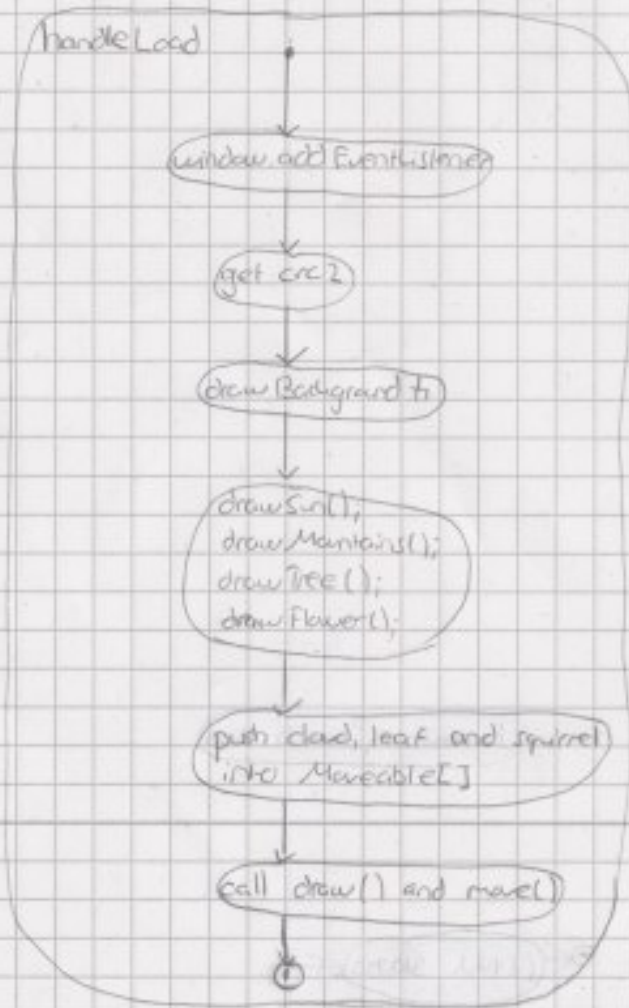 handleLoad
window.addEventListener
get crc2
drawBackground
drawSun();
drawMountains();
drawTree();
drawFlower();
push cloud, leaf and squirrel
into Moveable[]
call draw() and move()